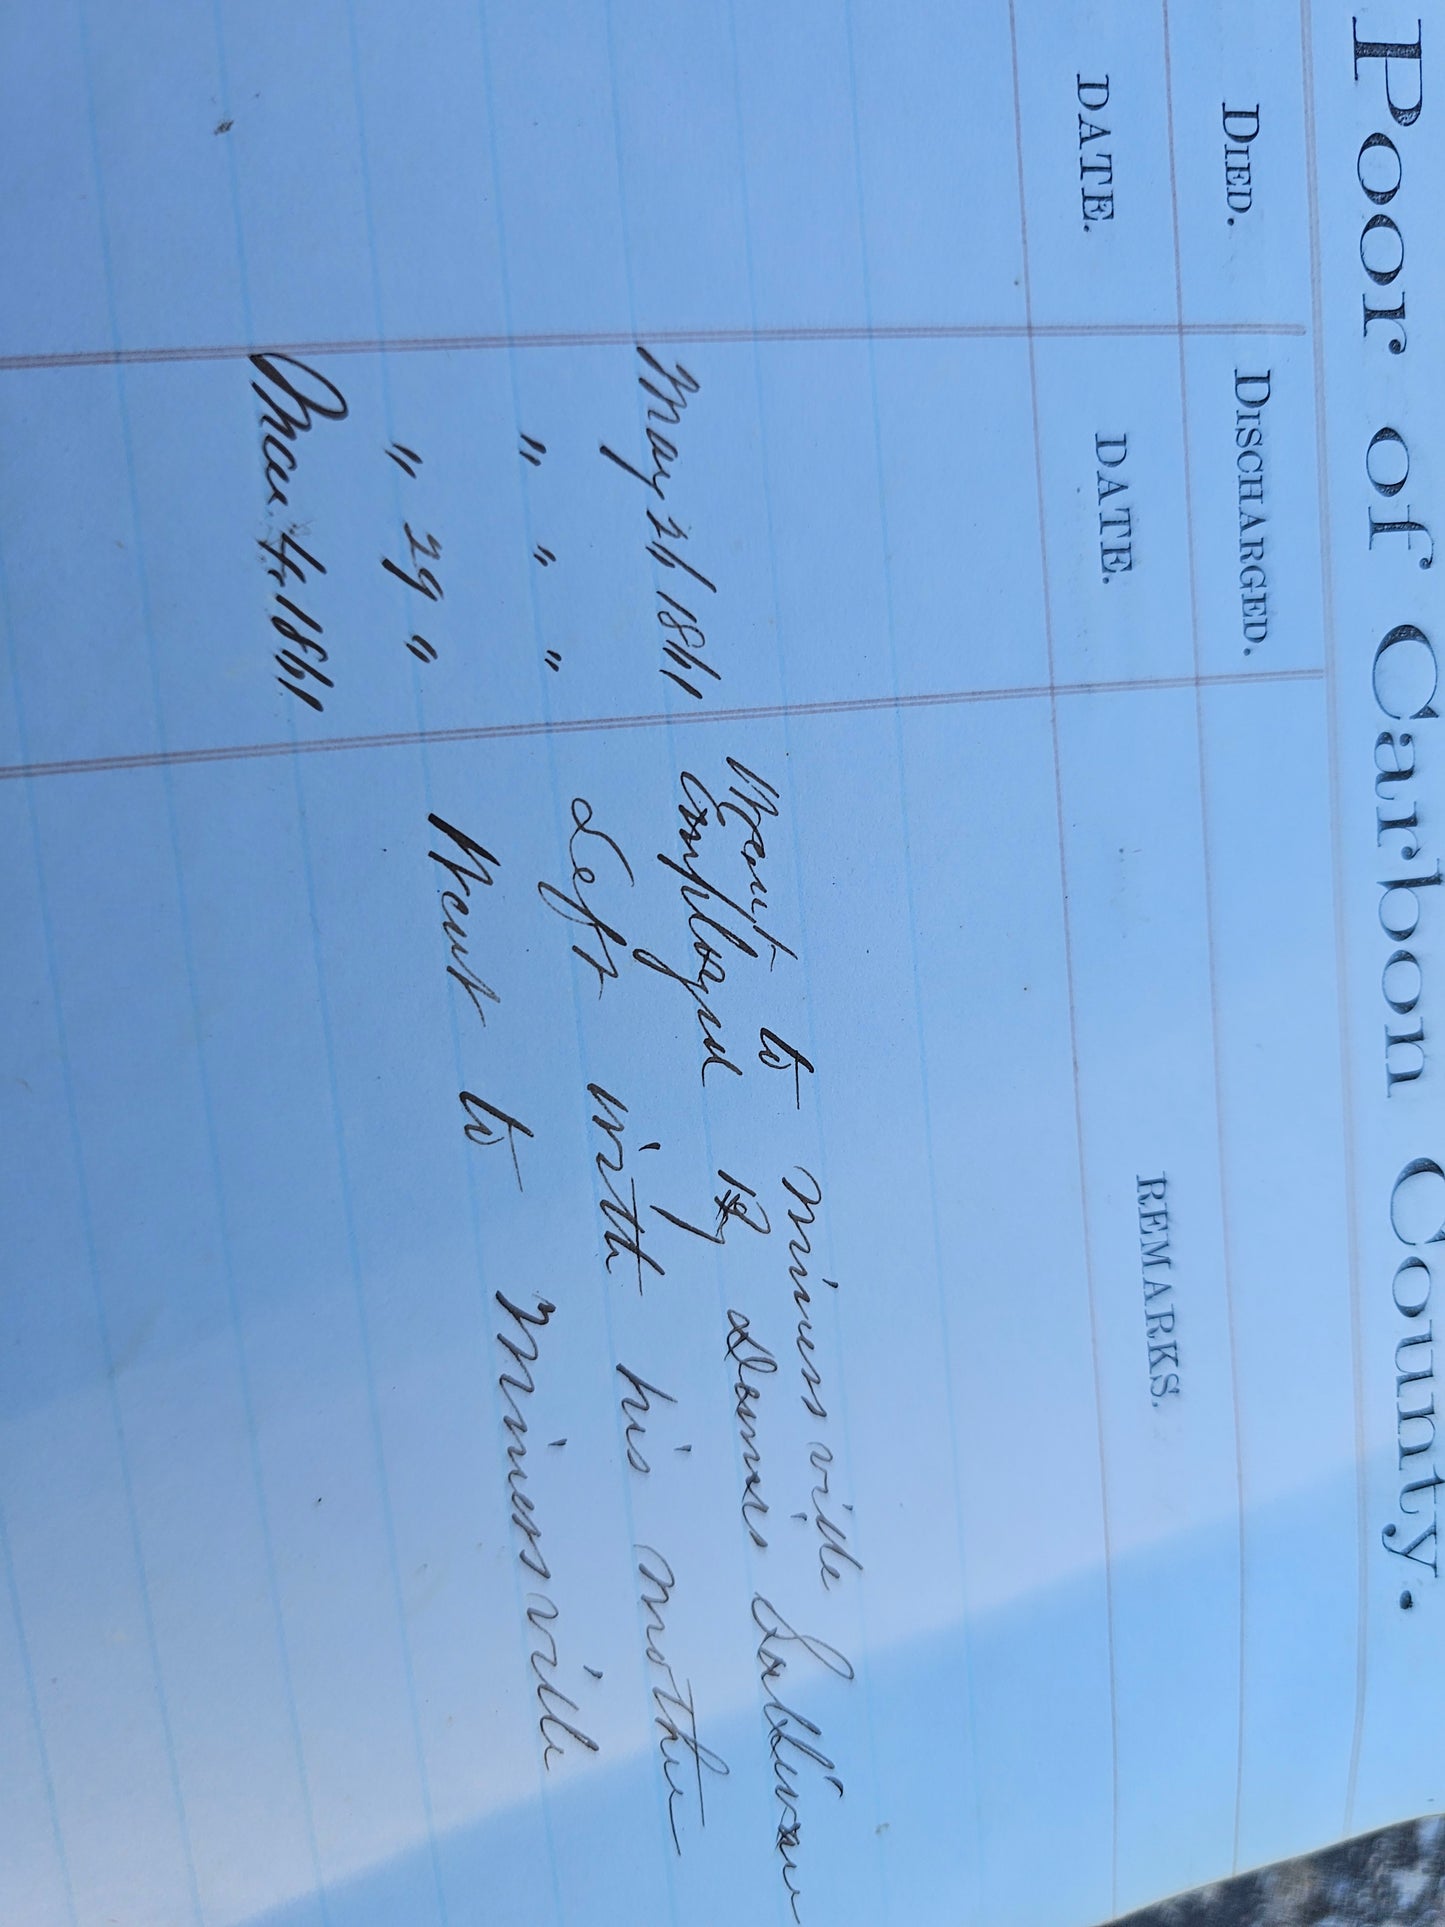 Poor of Carbon County.
DIED. DISCHARGED.
DATE. DATE. REMARKS.
Went to Minersville
May 26 1861 employed By Dennis Sullivan
" " " Left with his mother
" 29 " Went to Minersville
4, 1861